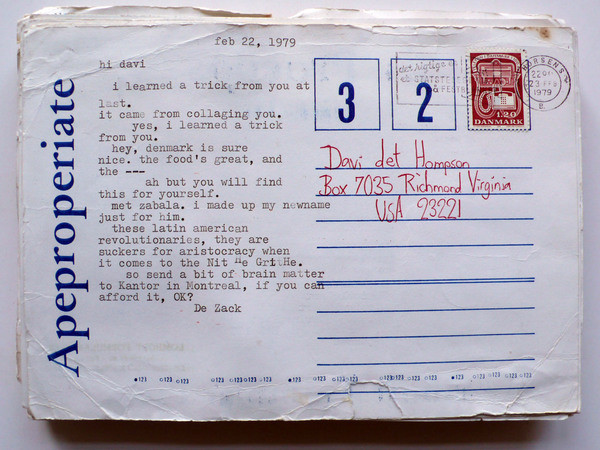 feb 22, 1979
Apeproperiate
hi davi
i learned a trick from you at
last.
it came from collaging you.
yes, i learned a trick
from you.
hey, denmark is sure
nice. the food's great, and
the ---
ah but you will find
this for yourself.
met zabala. i made up my newname
just for him.
these latin american
revolutionaries, they are
suckers for aristocracy when
it comes to the Nit He GritHe.
so send a bit of brain matter
to Kantor in Montreal, if you can
afford it, OK?
De Zack
3 2
1.20
DANMARK
HORSENS
23 FEB
1979
Davi det Hompson
Box 7035 Richmond Virginia
USA 23221
123 123 123 123 123 123 123 123 123 123 123 123 123 123 123 123